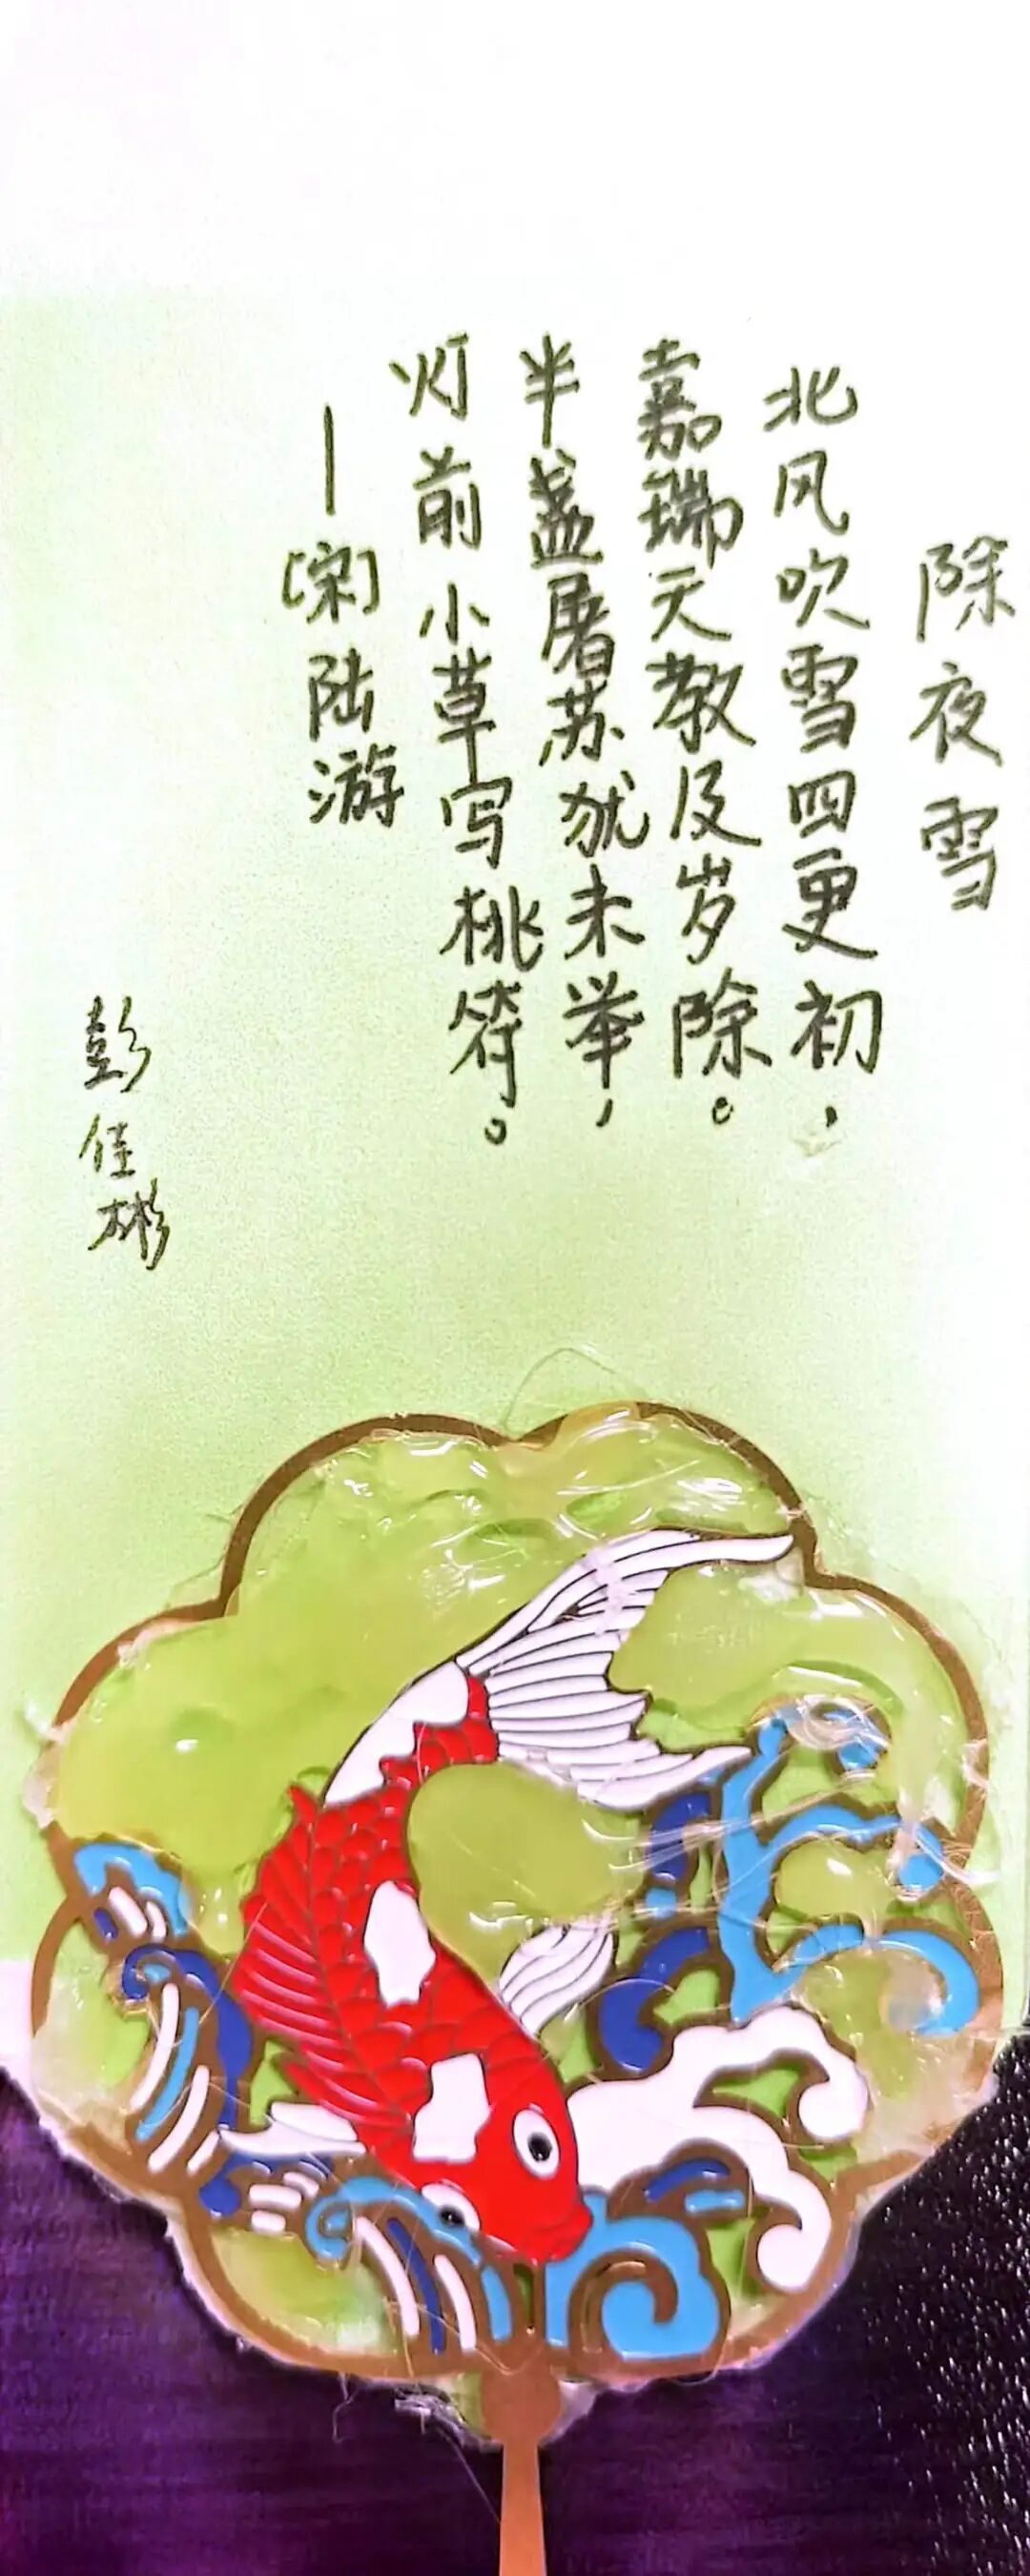 除夜雪
北风吹雪四更初，
嘉瑞天教及岁除。
半盏屠苏犹未举，
灯前小草写桃符。
—[宋]陆游
彭佳彬